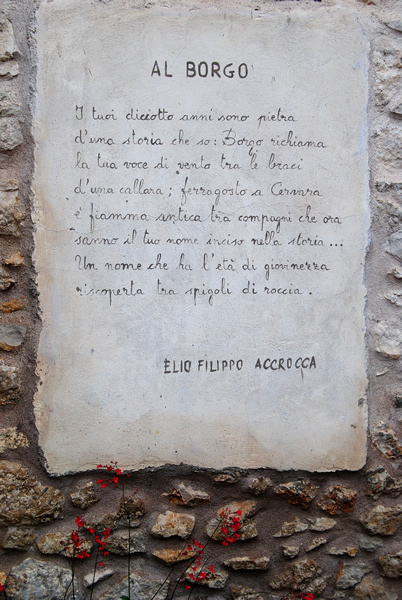 AL BORGO
I tuoi diciotto anni sono pietra
d'una storia che so: Borgo richiama
la tua voce di vento tra le braci
d'una callara; ferragosto a Cervara
é fiamma antica tra compagni che ora
sanno il tuo nome inciso nella storia ...
Un nome che ha l'età di giovinezza
riscoperta tra spigoli di roccia.
ELIO FILIPPO ACCROCCA